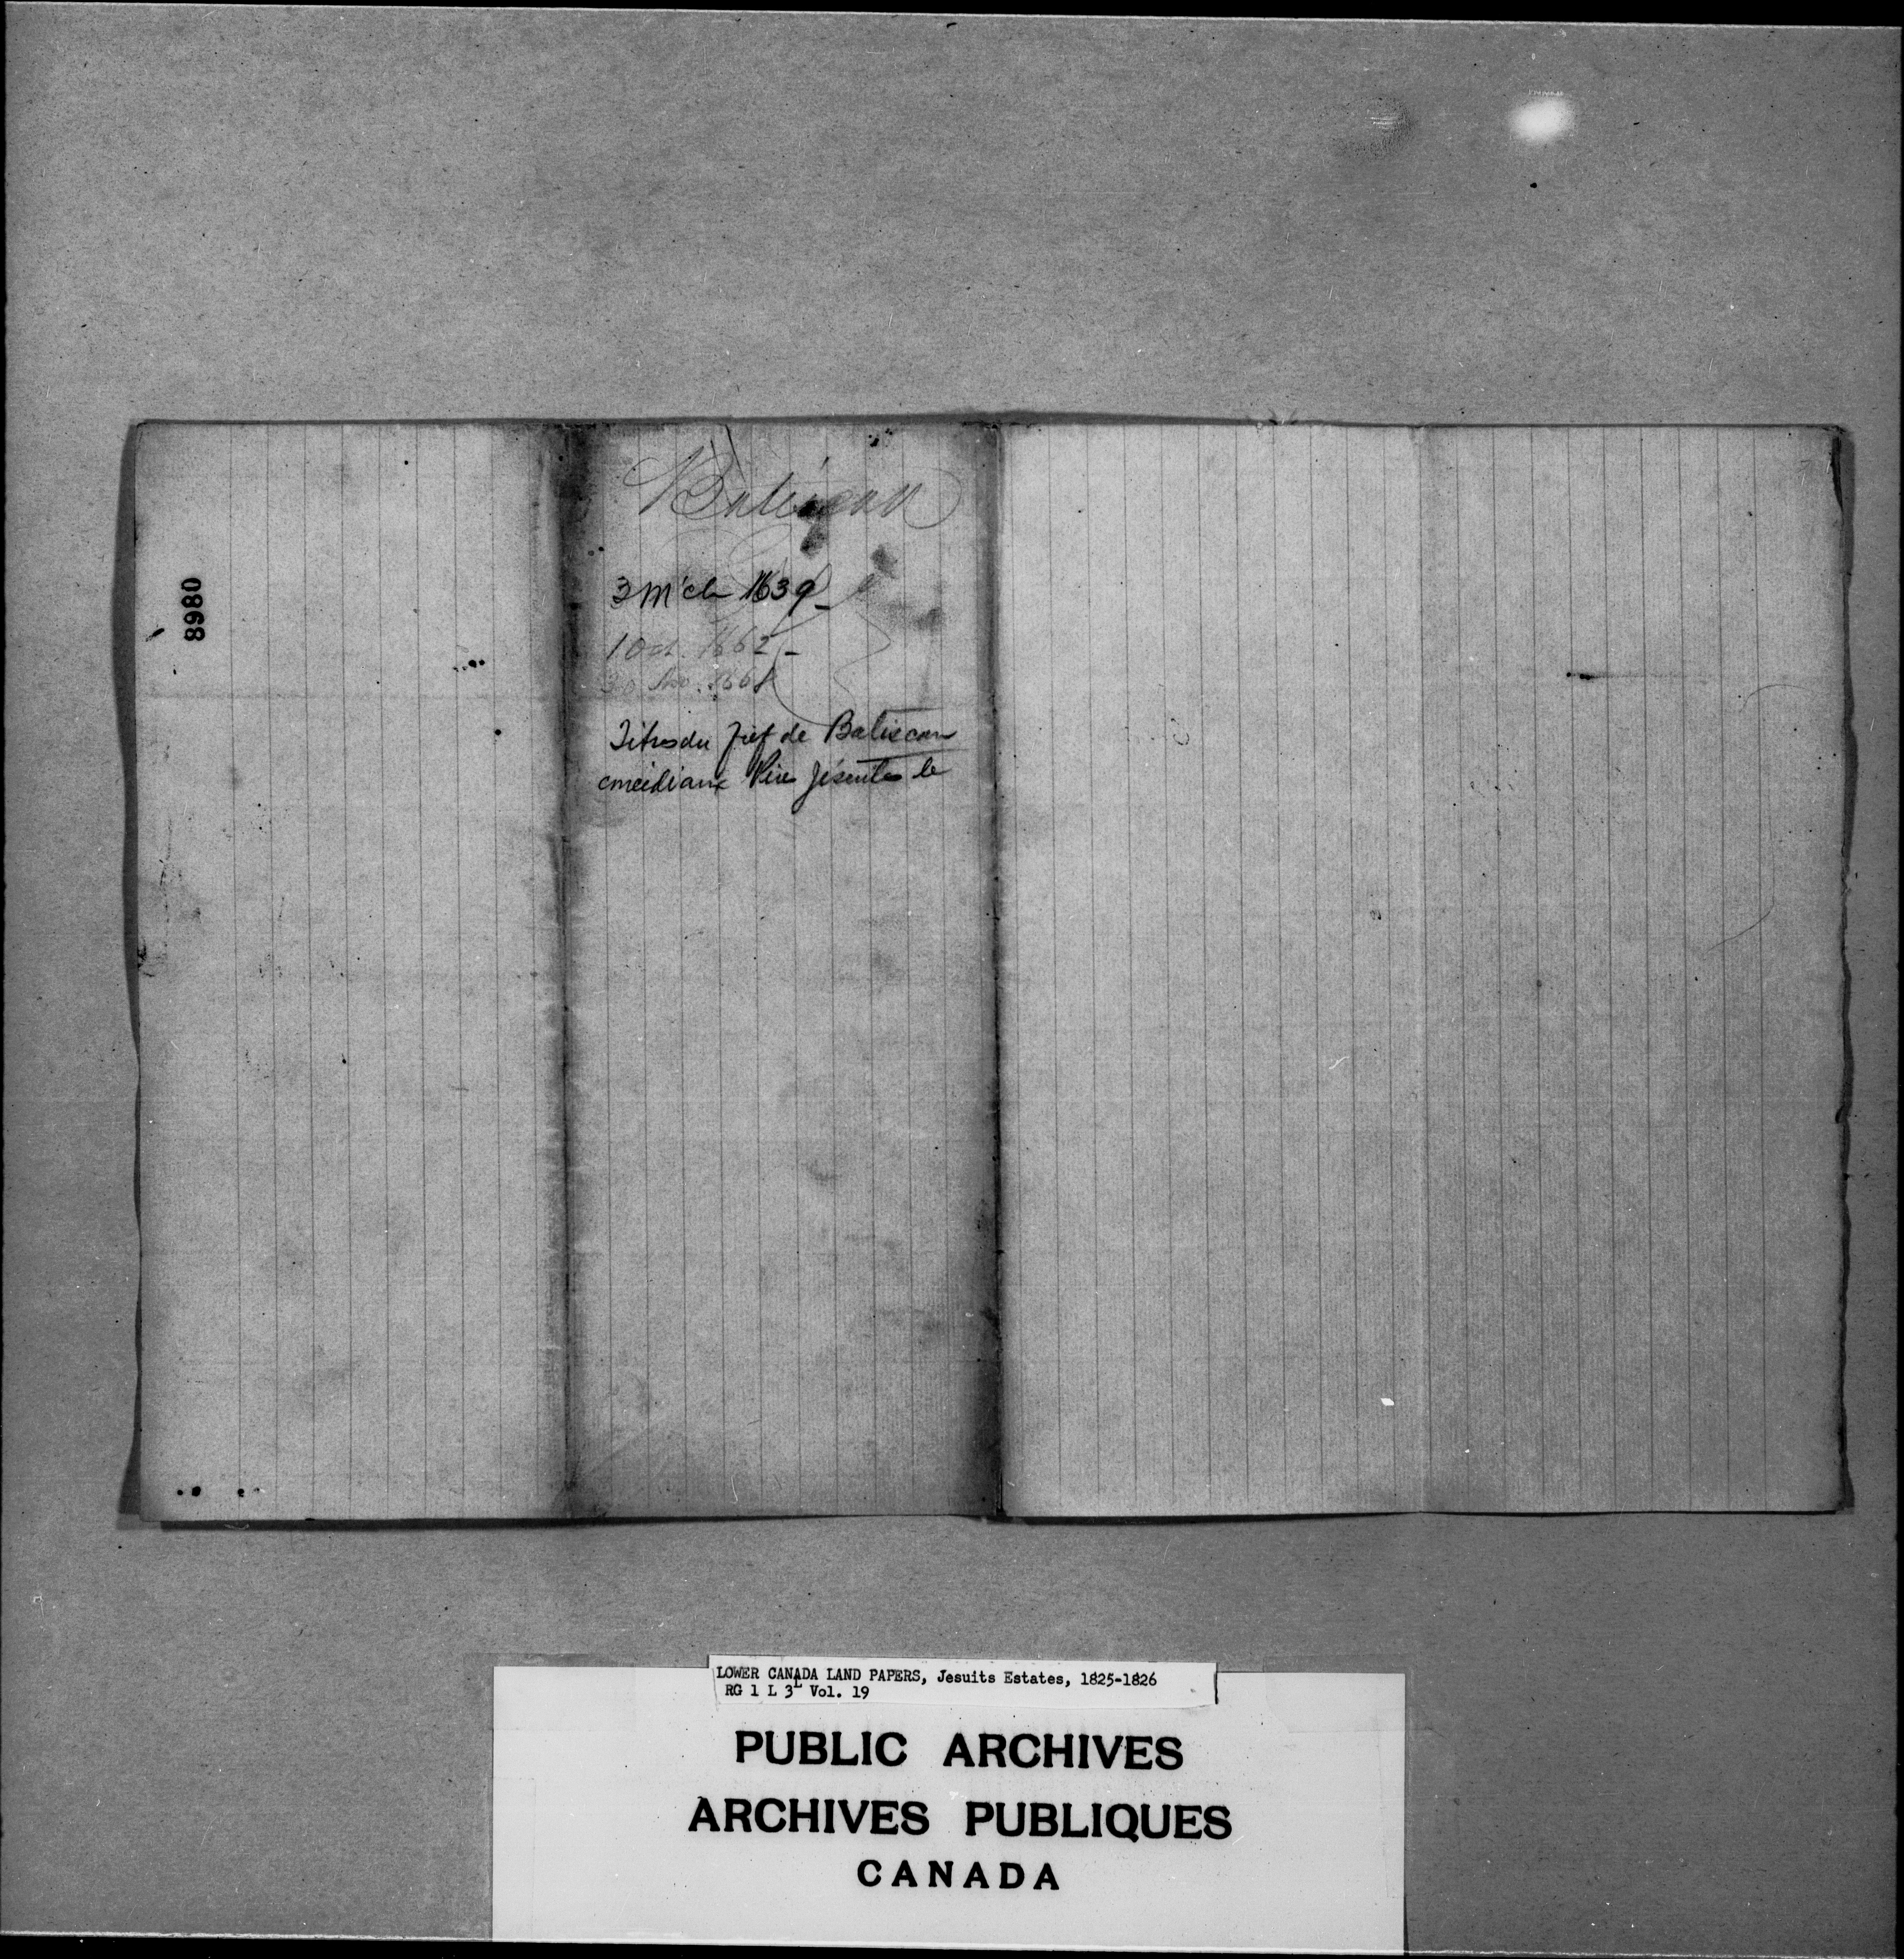 8980
Batiscan
3 M'ch 1639
1 Oct. 1662
30 1668
Titres du fief de Batiscan
Père Jésuites le
LOWER CANADA LAND PAPERS, Jesuits Estates, 1825-1826
RG 1 L 3L Vol. 19
PUBLIC ARCHIVES
ARCHIVES PUBLIQUES
CANADA